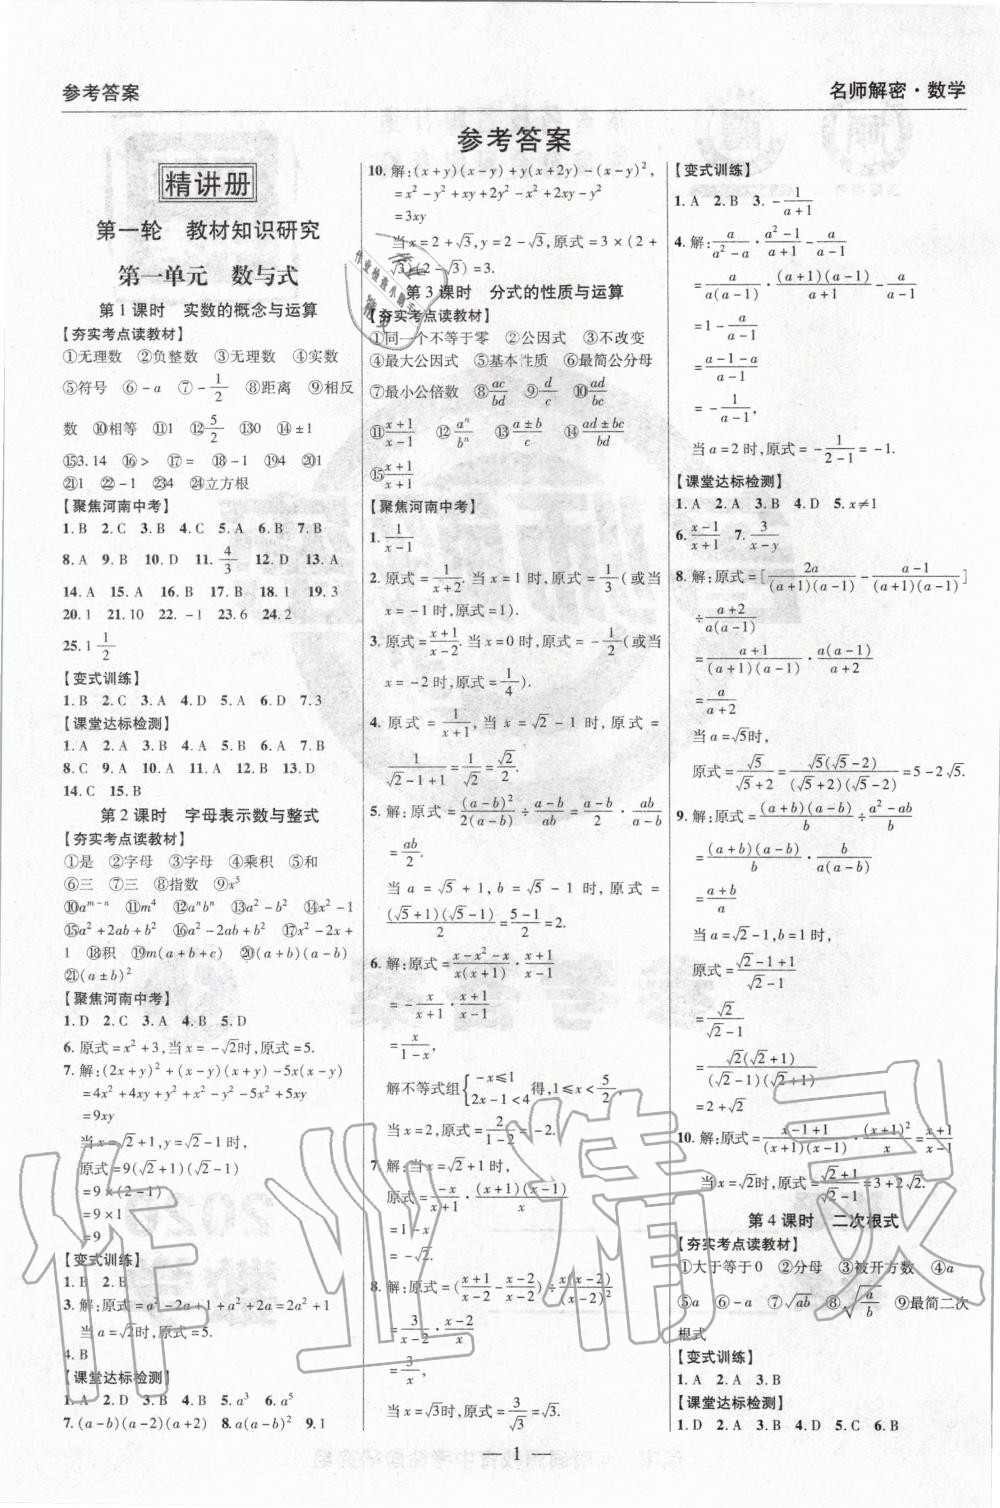 参考答案
名师解密·数学
参考答案
精讲册
第一轮 教材知识研究
第一单元 数与式
第1课时 实数的概念与运算
【夯实考点读教材】
①无理数 ②负整数 ③无理数 ④实数
⑤符号 ⑥-a ⑦-1/2 ⑧距离 ⑨相反
数 ⑩相等 ⑪1 ⑫5/2 ⑬0 ⑭±1
⑮3.14 ⑯> ⑰= ⑱-1 ⑲4 ⑳1
㉑1 ㉒-1 ㉓4 ㉔立方根
【聚焦河南中考】
1.B 2.C 3.B 4.C 5.A 6.B 7.B
8.A 9.B 10.D 11.4/3 12.D 13.A
14.A 15.A 16.B 17.B 18.1 19.3
20.1 21.10 22.-1 23.6 24.2
25.1 1/2
【变式训练】
1.B 2.C 3.A 4.D 5.A 6.D 7.3
【课堂达标检测】
1.A 2.A 3.B 4.B 5.A 6.B 7.C
8.C 9.A 10.A 11.B 12.B 13.D
14.C 15.B
第2课时 字母表示数与整式
【夯实考点读教材】
①是 ②字母 ③字母 ④乘积 ⑤和
⑥三 ⑦三 ⑧指数 ⑨x⁵
⑩aᵐ⁻ⁿ ⑪m⁴ ⑫aⁿbⁿ ⑬a²-b² ⑭x²-1
⑮a²+2ab+b² ⑯a²-2ab+b² ⑰x²-2x+
1 ⑱积 ⑲m(a+b+c) ⑳(a+b)(a-b)
㉑(a±b)²
【聚焦河南中考】
1.D 2.C 3.A 4.B 5.D
6.原式=x²+3,当x=-√2时,原式=5.
7.解:(2x+y)²+(x-y)(x+y)-5x(x-y)
=4x²+4xy+y²+x²-y²-5x²+5xy
=9xy
当x=√2+1,y=√2-1时,
原式=9(√2+1)(√2-1)
=9×(2-1)
=9×1
=9
【变式训练】
1.B 2.B
3.解:原式=a²-2a+1+a²+2a=2a²+1
当a=√2时,原式=5.
4.B
【课堂达标检测】
1.A 2.D 3.B 4.B 5.a³ 6.a⁵
7.(a-b)(a-2)(a+2) 8.(a-b)² 9.1
10.解:(x+y)(x-y)+y(x+2y)-(x-y)²,
=x²-y²+xy+2y²-x²+2xy-y²
=3xy
当x=2+√3,y=2-√3时,原式=3×(2+
√3)(2-√3)=3.
第3课时 分式的性质与运算
【夯实考点读教材】
①同一个不等于零 ②公因式 ③不改变
④最大公因式 ⑤基本性质 ⑥最简公分母
⑦最小公倍数 ⑧ac/bd ⑨d/c ⑩ad/bc
⑪(x+1)/(x-1) ⑫aⁿ/bⁿ ⑬(a±b)/c ⑭(ad±bc)/bd
⑮(x+1)/(x-1)
【聚焦河南中考】
1.1/(x-1)
2.原式=1/(x+2).当x=1时,原式=1/3(或当
x=-1时,原式=1).
3.原式=(x+1)/(x-2).当x=0时,原式=-1/2(或当
x=-2时,原式=1/4).
4.原式=1/(x+1),当x=√2-1时,原式=
1/(√2-1+1)=1/√2=√2/2
5.解:原式=(a-b)²/2(a-b)÷(a-b)/ab=(a-b)/2·ab/(a-b)
=ab/2.
当a=√5+1,b=√5-1时,原式=
(√5+1)(√5-1)/2=(5-1)/2=2.
6.解:原式=(x-x²-x)/x(x+1)·(x+1)/(x-1)
=-x/(x+1)·(x+1)/(x-1)
=x/(1-x),
解不等式组{-x≤1 2x-1<4得,1≤x<5/2,
当x=2,原式=2/(1-2)=-2.
7.解:当x=√2+1时,
原式=-x/(x+1)·(x+1)(x-1)/x
=1-x
=-√2
8.解:原式=((x+1)/(x-2)-(x-2)/(x-2))÷x(x-2)/(x-2)²
=3/(x-2)·(x-2)/x
=3/x,
当x=√3时,原式=3/√3=√3.
【变式训练】
1.A 2.B 3.-1/(a+1)
4.解:a/(a²-a)·(a²-1)/(a+1)-a/(a-1)
=a/a(a-1)·(a+1)(a-1)/(a+1)-a/(a-1)
=1-a/(a-1)
=(a-1-a)/(a-1)
=-1/(a-1),
当a=2时,原式=-1/(2-1)=-1.
【课堂达标检测】
1.A 2.A 3.B 4.D 5.x≠1
6.(x-1)/(x+1) 7.3/(x-y)
8.解:原式=[2a/(a+1)(a-1)-(a-1)/(a+1)(a-1)]
÷(a+2)/a(a-1)
=(a+1)/(a+1)(a-1)·a(a-1)/(a+2)
=a/(a+2)
当a=√5时,
原式=√5/(√5+2)=√5(√5-2)/(√5+2)(√5-2)=5-2√5.
9.解:原式=(a+b)(a-b)/b÷(a²-ab)/b
=(a+b)(a-b)/b·b/a(a-b)
=(a+b)/a
当a=√2-1,b=1时,
原式=(√2-1+1)/(√2-1)
=√2/(√2-1)
=√2(√2+1)/(√2-1)(√2+1)
=2+√2
10.解:原式=(x-1+1)/(x+1)(x-1)·(x+1)²/x=(x+1)/(x-1)
当x=√2时,原式=(√2+1)/(√2-1)=3+2√2.
第4课时 二次根式
【夯实考点读教材】
①大于等于0 ②分母 ③被开方数 ④a
⑤a ⑥-a ⑦√ab ⑧√(a/b) ⑨最简二次
根式
【变式训练】
1.A 2.A 3.B
【课堂达标检测】
1.D 2.D 3.B 4.B 5.C 6.A
— 1 —
作业精灵